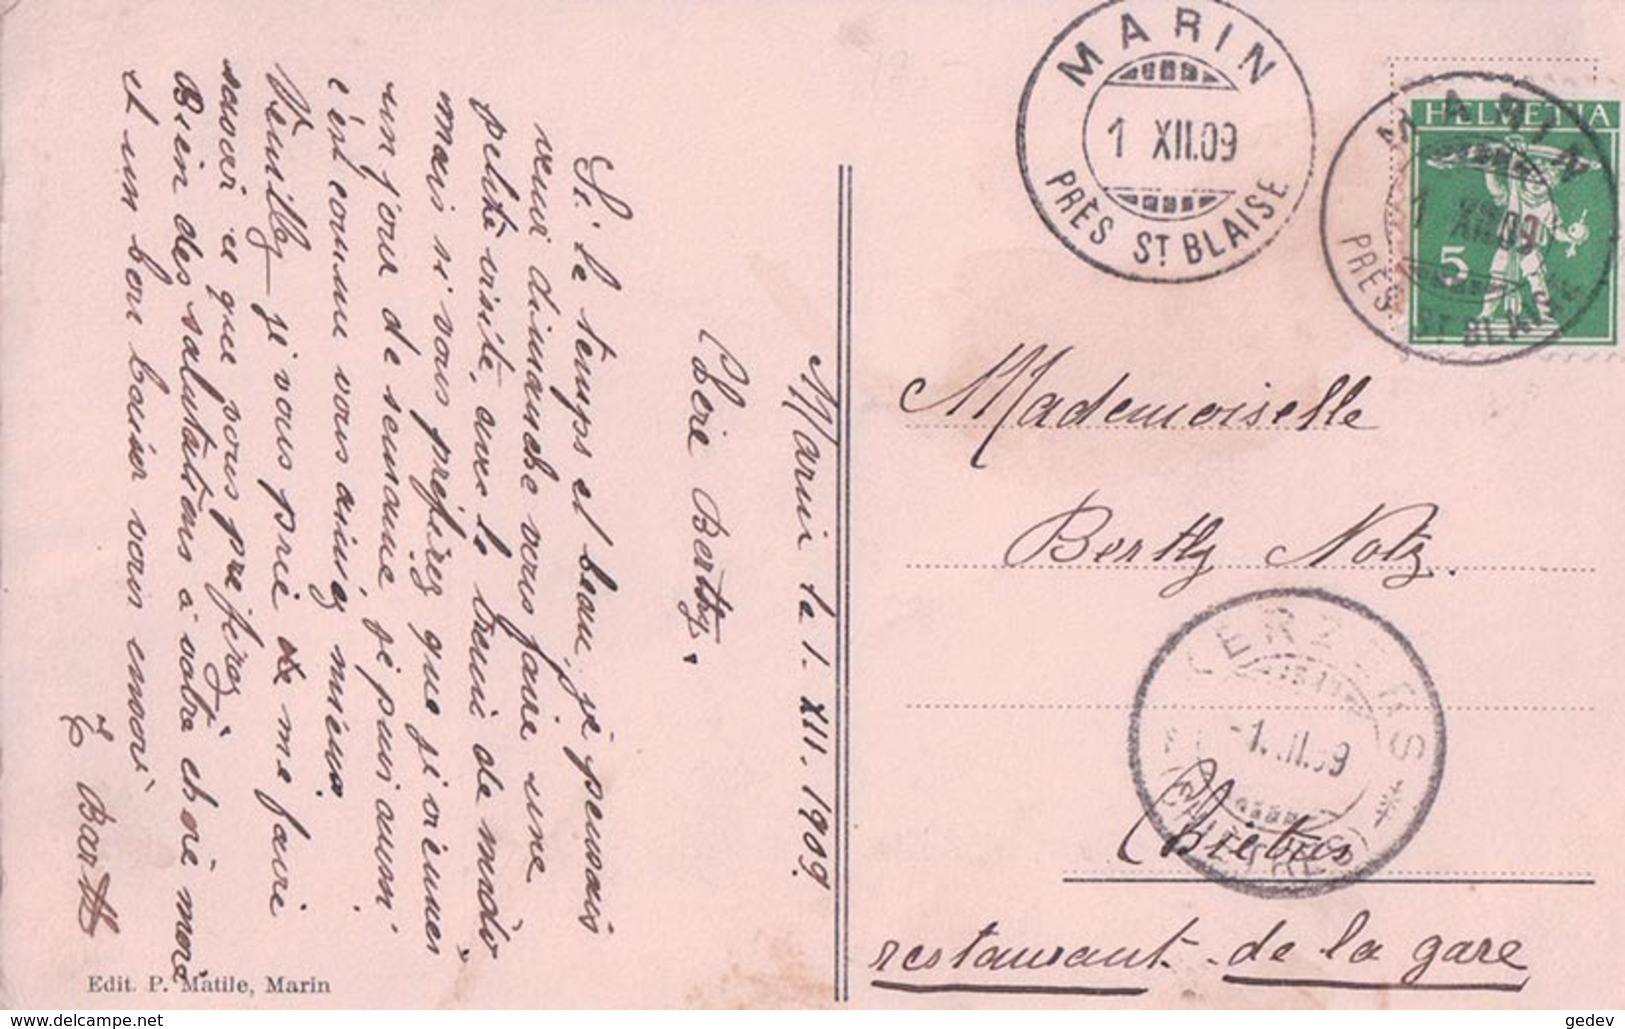 Marin le 1. XII. 1909.
Chère Berthy.
Si le temps et beau, je pensais
venir dimanche vous faire une
petite visite, avec le train de midi,
mais si vous préférez que je viennes
un jour de semaine, je puis aussi
c'est comme vous aimez mieux
Veuilley je vous prie de me faire
savoir ce que vous preferez,
Bien des salutations à votre chère
et un bon baiser vous
E Barth
Edit. P. Matile, Marin
MARIN
1 XII.09
PRÈS ST BLAISE
HELVETIA
5
MARIN
1 XII.09
PRÈS ST BLAISE
Mademoiselle
Berthy Notz.
KERZERS
-1.XII.09
(CHIÈTRES)
Chietres
restaurant de la gare
delcampe.net
gedev